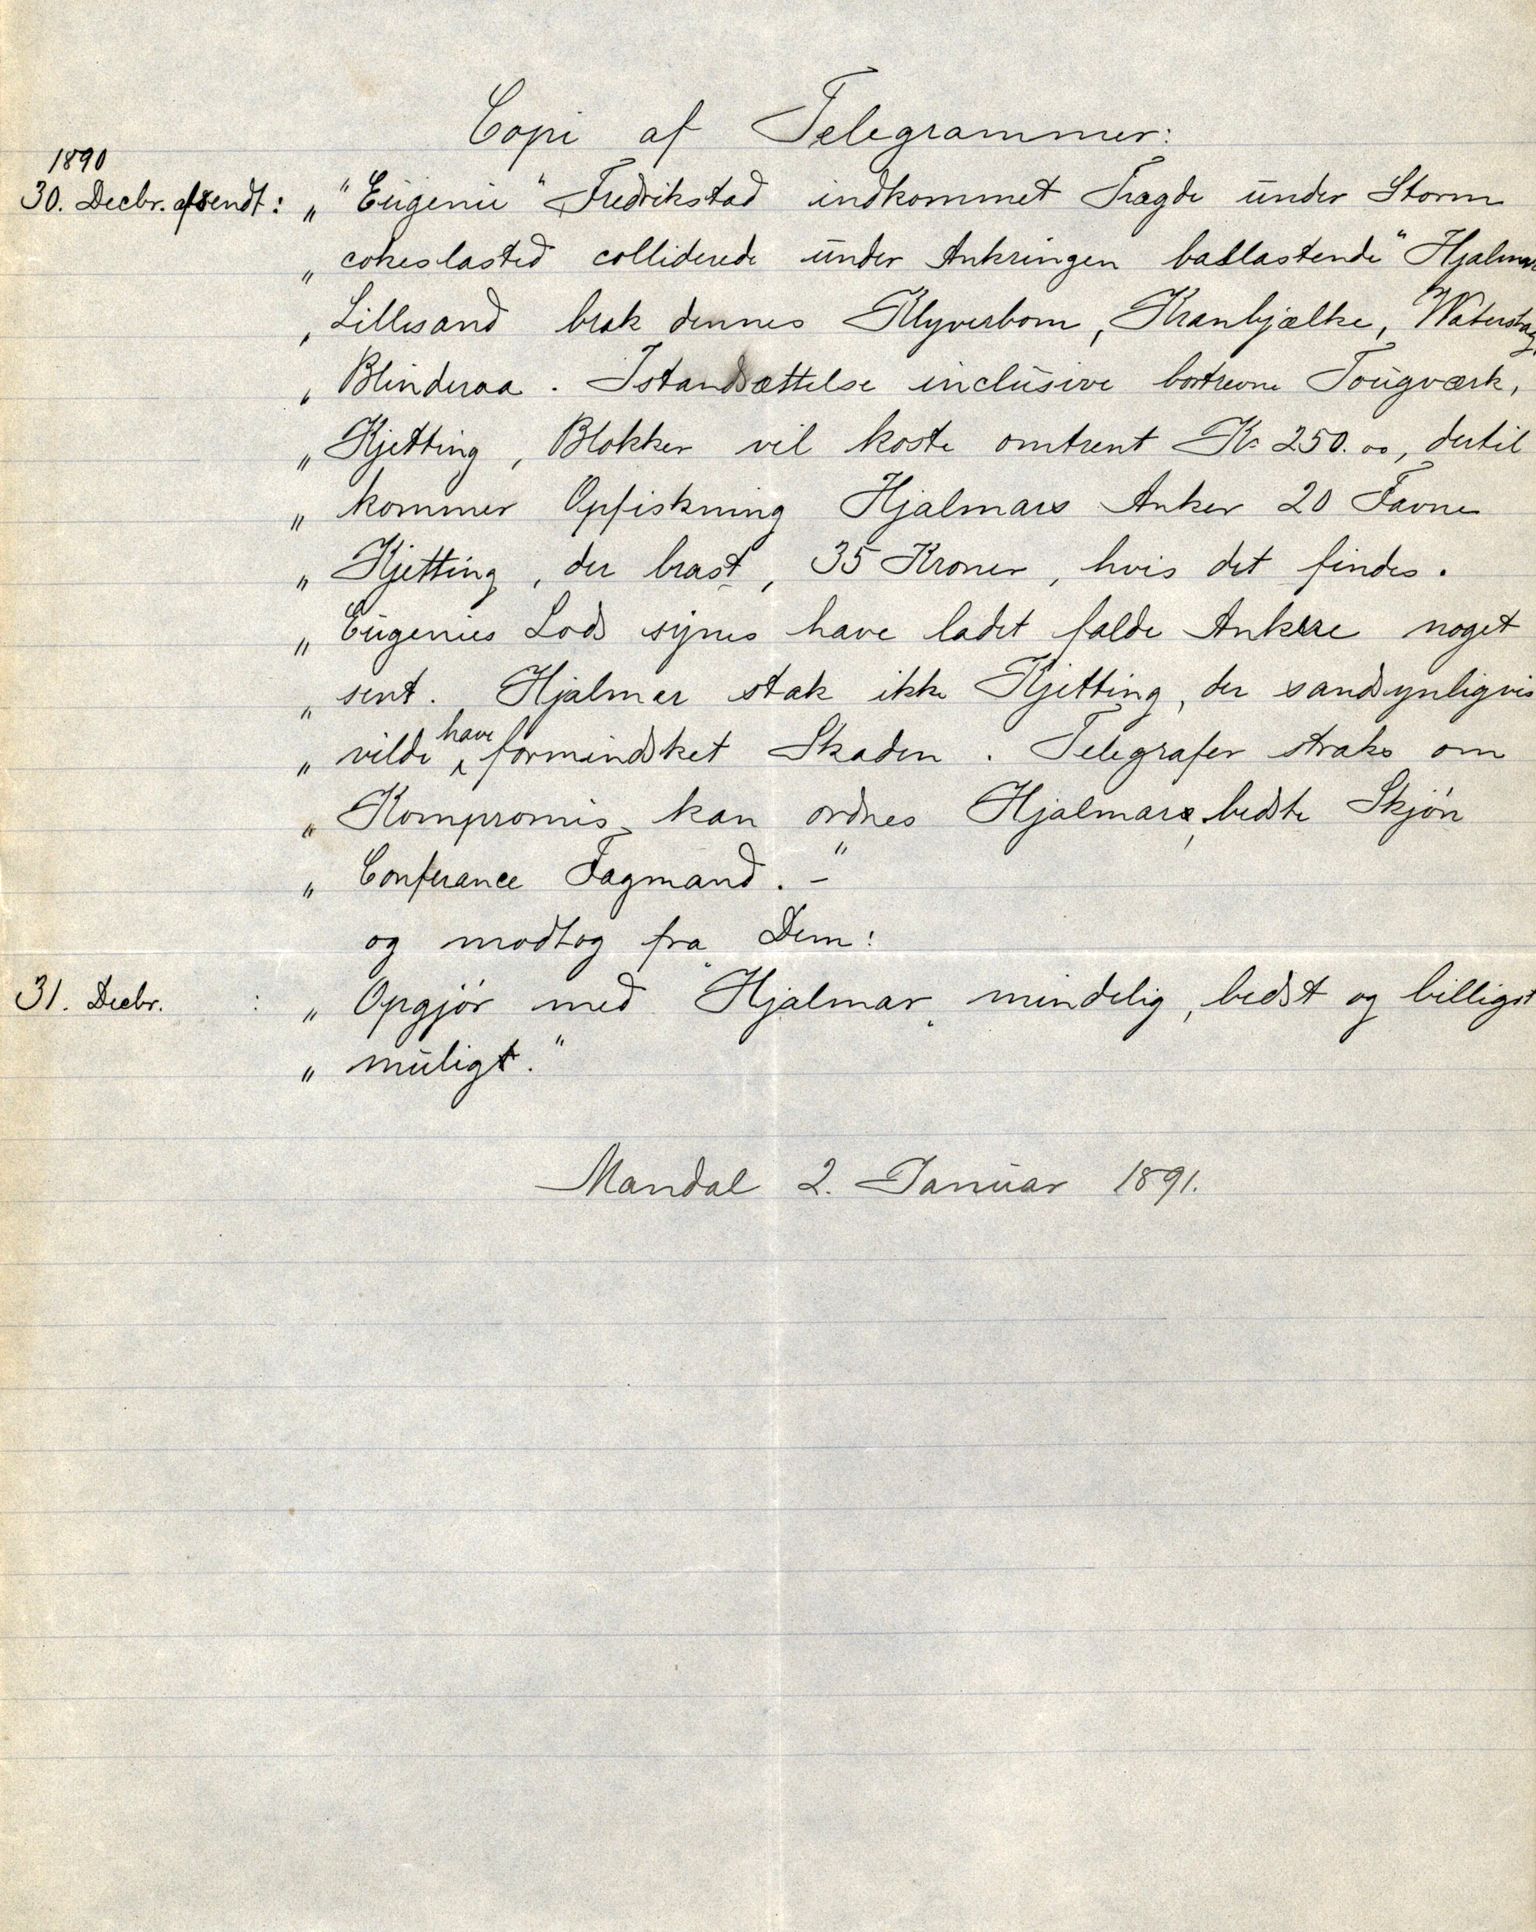 Copi af Telegrammer:
1890
30. Decbr. afsendt: „ "Eugenie" Fredrikstad indkommet Tregde under Storm
„ cokeslasted colliderede under Ankringen ballastende "Hjalmar
„ Lillesand brak dennes Klyverbom, Kranbjælke, Waterstag,
„ Blinderaa. Istandsættelse inclusive bortrevne Tougværk,
„ Kjetting, Blokker vil koste omtrent Kr 250.00, dertil
„ kommer Opfiskning Hjalmars Anker 20 Favne
„ Kjetting, der brast, 35 Kroner, hvis det findes.
„ Eugenies Lods synes have ladet falde Ankere noget
„ sent. Hjalmar stak ikke Kjetting, der sandsynligvis
„ vilde have formindsket Skaden. Telegrafer straks om
„ Kompromis kan ordnes Hjalmars, bedste Skjøn
„ Conferance Fagmand." –
og modtog fra Dem:
31. Decbr. : „ Opgjør med "Hjalmar" mindelig, bedst og billigst
„ muligt."
Mandal 2. Januar 1891.